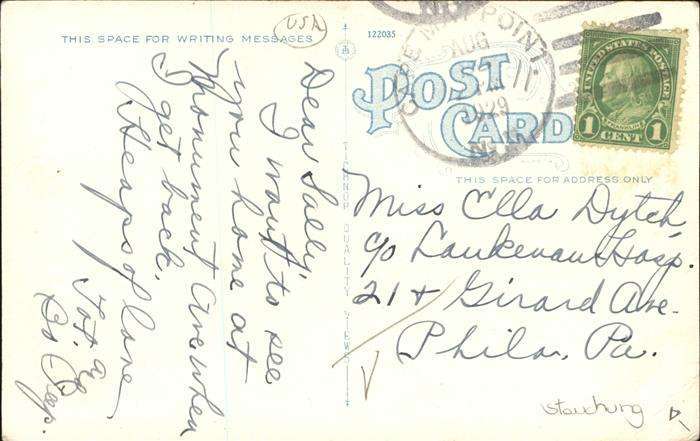 USA
THIS SPACE FOR WRITING MESSAGES
122035
POST
CARD
CAPE MAY POINT.
AUG
11
1929
N.J.
UNITED STATES POSTAGE
FRANKLIN
1 CENT 1
THIS SPACE FOR ADDRESS ONLY
TICHNOR QUALITY VIEWS
Dear Sally,
I want to see
you home at
Monument Ave when
I get back.
Heaps of love
Tot &
Miss Ella Dytch,
c/o Lankenau Hosp.
21 + Girard Ave.
Phila. Pa.